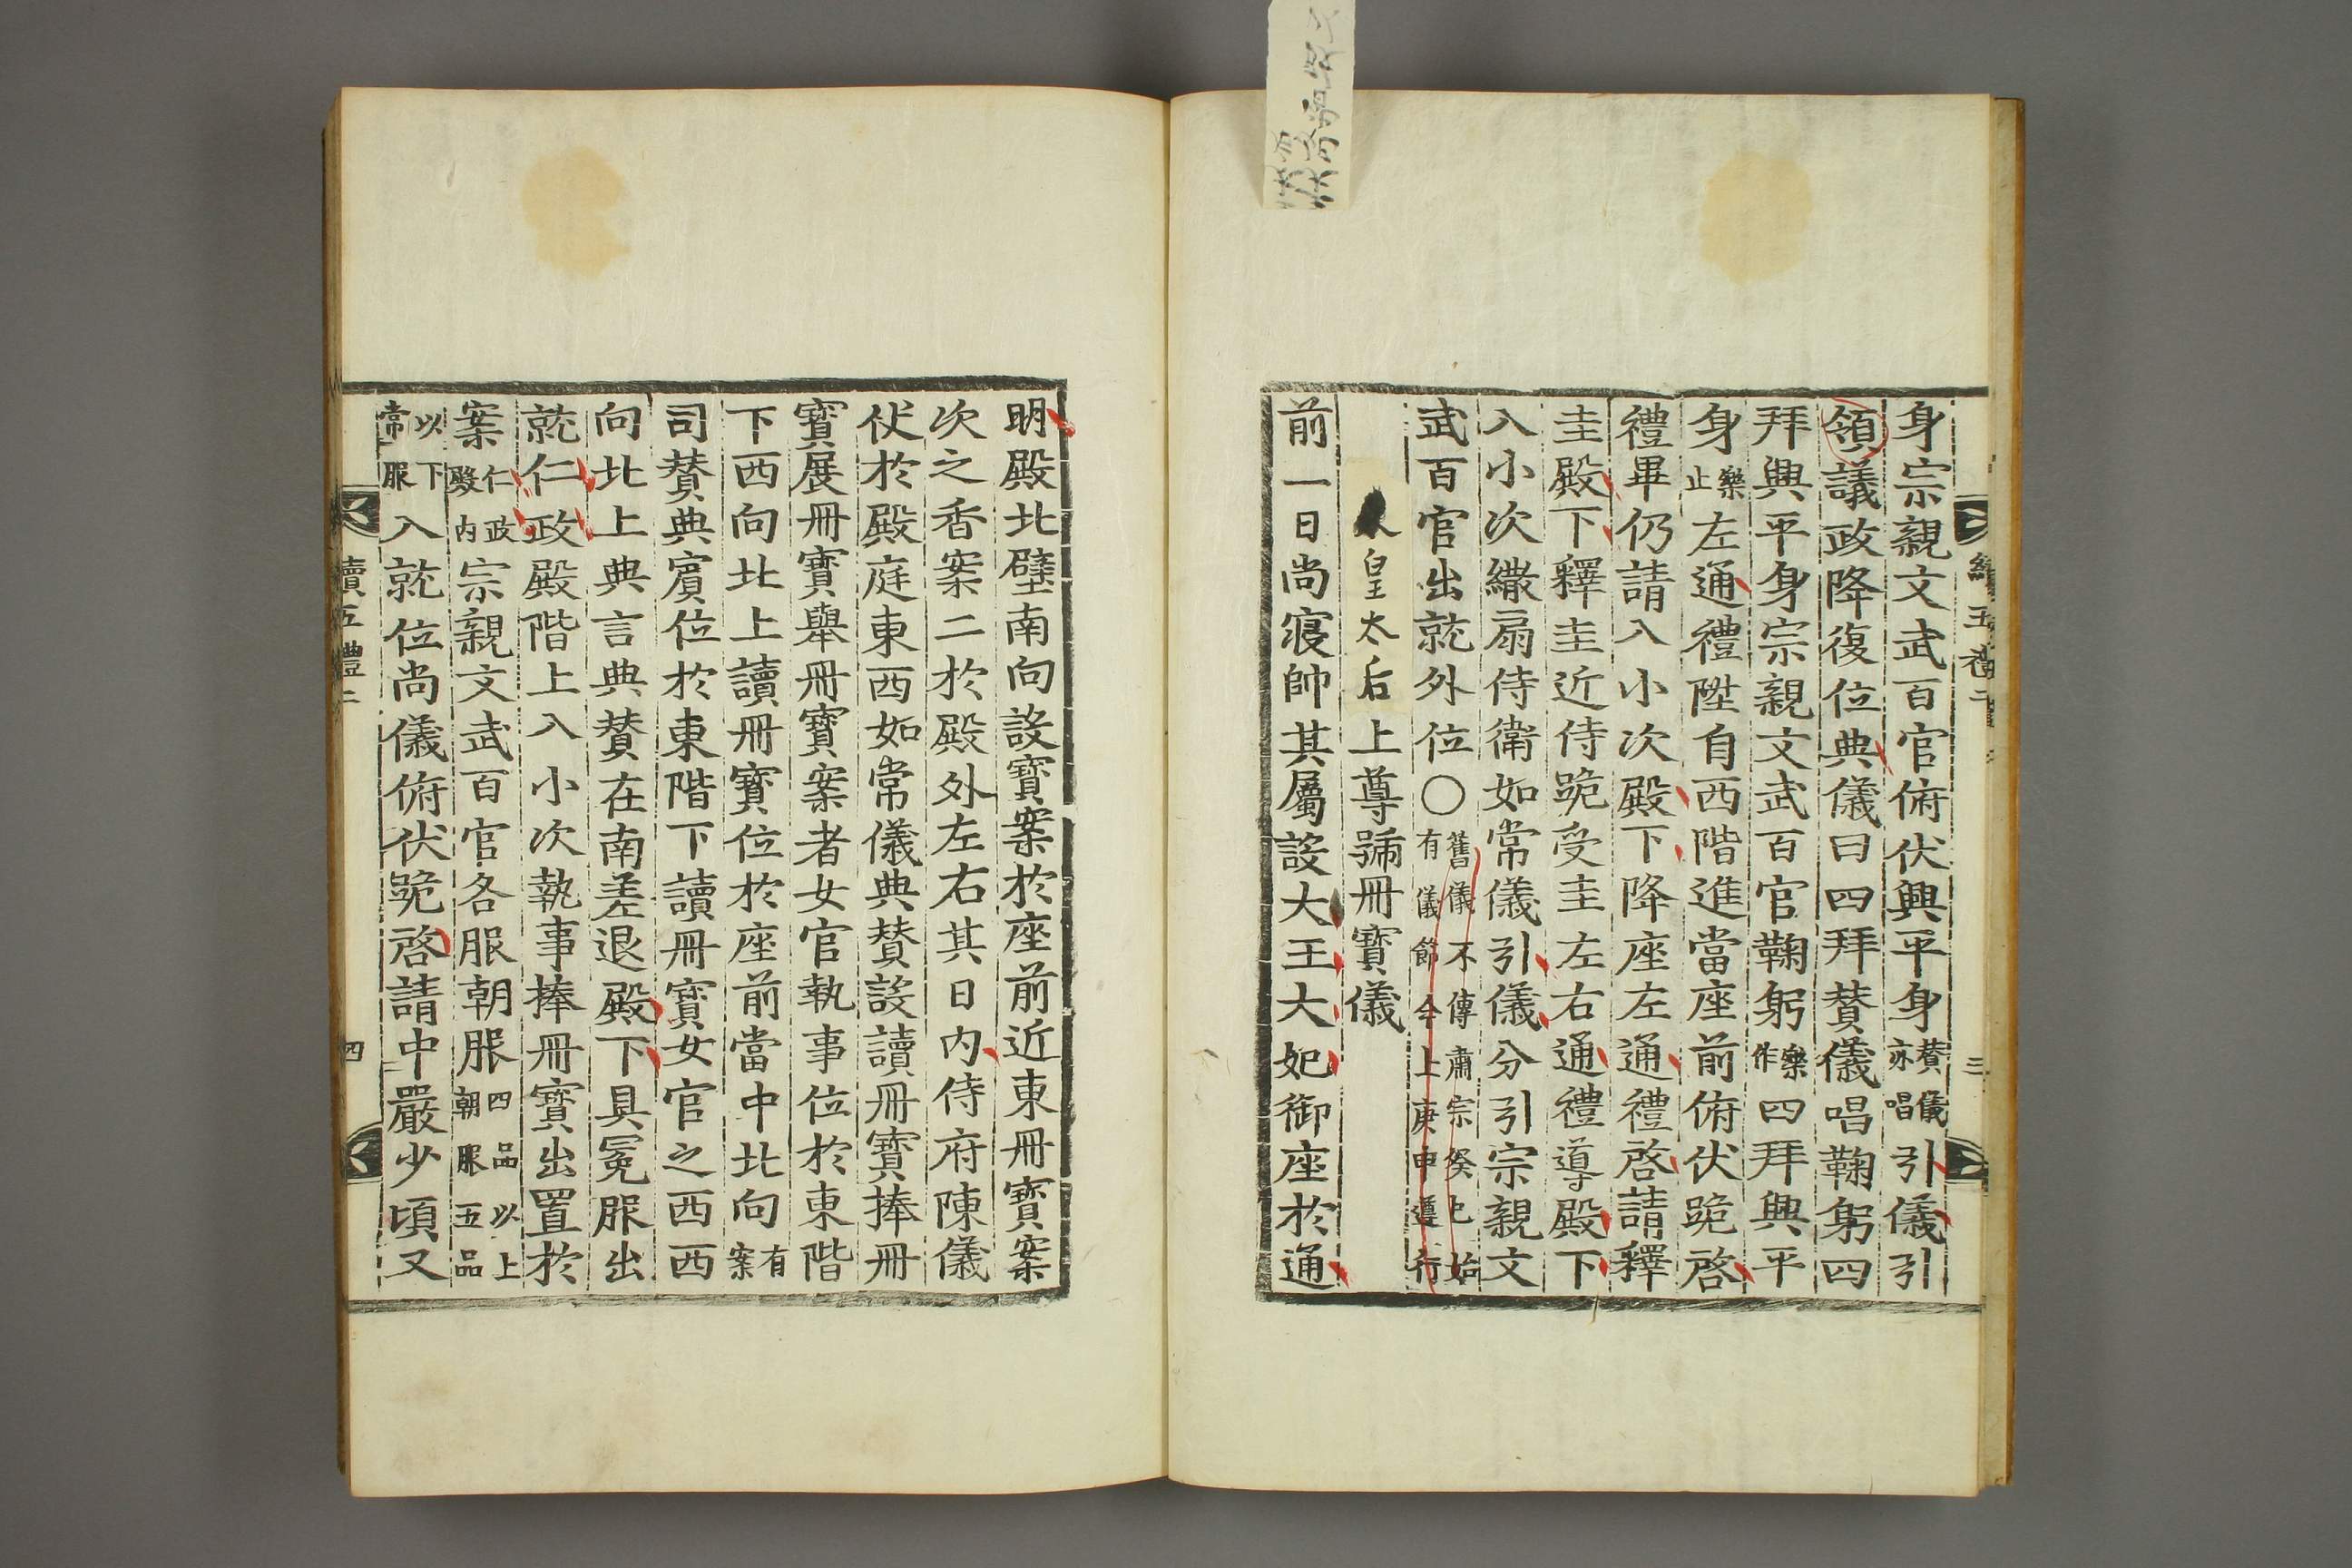 身宗親文武百官俯伏興平身贊儀亦唱引儀引
領議政降復位典儀曰四拜贊儀唱鞠躬四
拜興平身宗親文武百官鞠躬樂作四拜興平
身樂止左通禮陞自西階進當座前俯伏跪啓
禮畢仍請入小次殿下降座左通禮啓請釋
圭殿下釋圭近侍跪受圭左右通禮導殿下
入小次繖扇侍衛如常儀引儀分引宗親文
武百官出就外位○舊儀不傳肅宗癸巳始有儀節今上庚申遵行
皇太后上尊號冊寶儀
前一日尙寢帥其屬設大王大妃御座於通
明殿北壁南向設寶案於座前近東冊寶案
次之香案二於殿外左右其日內侍府陳儀
仗於殿庭東西如常儀典贊設讀冊寶捧冊
寶展冊寶舉冊寶案者女官執事位於東階
下西向北上讀冊寶位於座前當中北向有案
司贊典賓位於東階下讀冊寶女官之西西
向北上典言典贊在南差退殿下具冕服出
就仁政殿階上入小次執事捧冊寶出置於
案仁政殿內宗親文武百官各服朝服四品以上朝服五品
以下常服入就位尙儀俯伏跪啓請中嚴少頃又
續五禮二
四
三